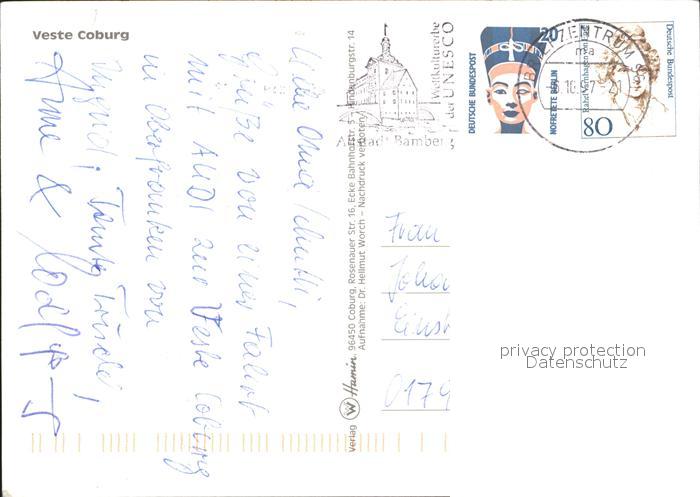 Veste Coburg
Liebe Oma
Grüße von einer Fahrt
mit AUDI zur Veste Coburg
in Oberfranken von
Ingrid, Tante
Anne &
Verlag Hamin, 96450 Coburg, Rosenauer Str. 16, Ecke Bahnhofstr. 5 - Hindenburgstr. 14
Aufnahme: Dr. Hellmut Worch – Nachdruck verboten
Weltkulturerbe
der UNESCO
Altstadt Bamberg
DEUTSCHE BUNDESPOST
20
NOFRETETE BERLIN
BRIEFZENTRUM
ma
Rahel Varnhagen von Ense
80
Deutsche Bundespost
Frau
Joha
Einst
0179
privacy protection
Datenschutz